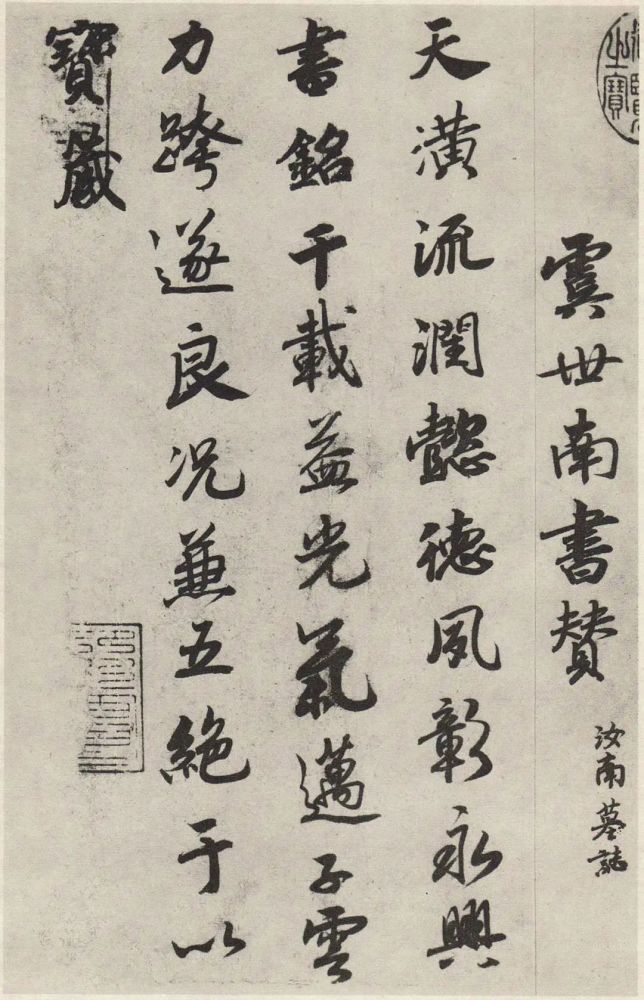 虞世南書賛
汝南墓誌
天潢流潤懿德夙彰永興
書銘千載益光氣邁子雲
力跨遂良况蒹五絶于以
寶藏